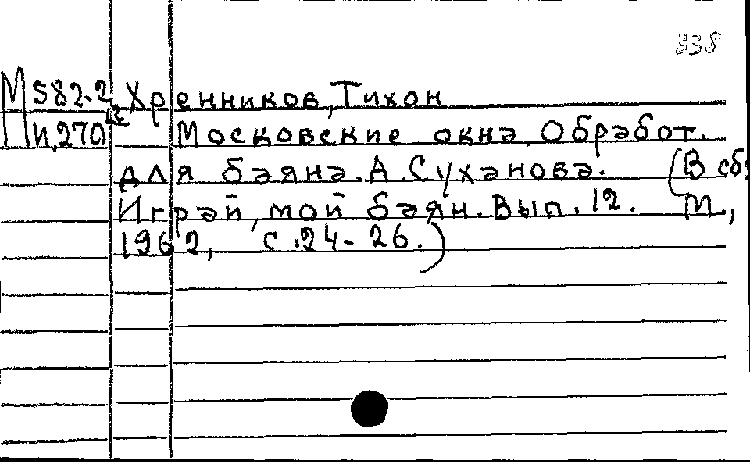 338
М582-2 Хренников, Тихон
И,270 Московские окна. Обработ.
для баяна. А. Суханова. (В сб:
Играй, мой баян. Вып. 12. М,
1962, с. 24-26.)